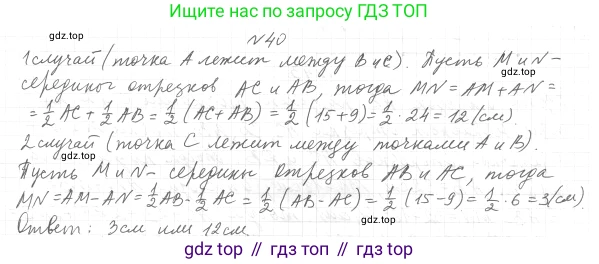 Ищите нас по запросу ГДЗ ТОП
№40
1 случай (точка А лежит между В и С). Пусть M и N -
середины отрезков AC и AB, тогда MN = AM + AN =
= 1/2 AC + 1/2 AB = 1/2 (AC + AB) = 1/2 (15 + 9) = 1/2 · 24 = 12 (см).
2 случай (точка С лежит между точками А и В).
Пусть M и N - середины отрезков AB и AC, тогда
MN = AM - AN = 1/2 AB - 1/2 AC = 1/2 (AB - AC) = 1/2 (15 - 9) = 1/2 · 6 = 3 (см)
Ответ: 3см или 12см.
gdz.top // гдз топ // gdz.top // гдз топ // gdz.top